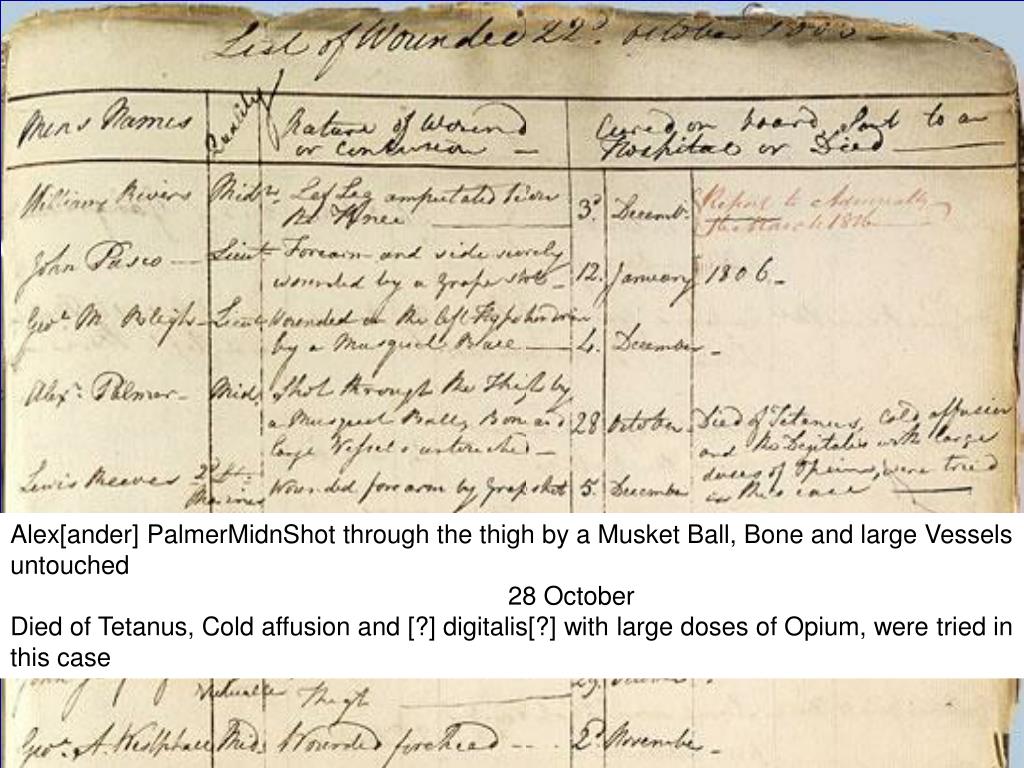 List of Wounded 22d. October
Mens Names
Quality
Nature of Wound
or contusion
Cured on board, Sent to an
Hospital or Died
William Rivers
Midn.
Left Leg amputated below
the Knee
3d
Decembr.
Report to Admiralty
John Pasco
Lieut
Forearm and side
wounded by a grape shot
12.
January
1806.
Geoe. M. Bleigh
Lieut
Wounded in the left
by a Musquet Ball
4.
December
Alexr. Palmer
Mid
Shot through the Thigh by
a Musquet Ball, Bone and
large Vessels untouched
28
October
Died of Tetanus, Cold affusion
and the Digitalis with large
doses of Opium, were tried
in this case
Lewis Reeves
2d Lt.
Marines
Wounded forearm by grape shot
5.
December
Alex[ander] PalmerMidnShot through the thigh by a Musket Ball, Bone and large Vessels
untouched
28 October
Died of Tetanus, Cold affusion and [?] digitalis[?] with large doses of Opium, were tried in
this case
Thigh
Geoe. A. Westphall
Mid.
Wounded forehead
2d
November